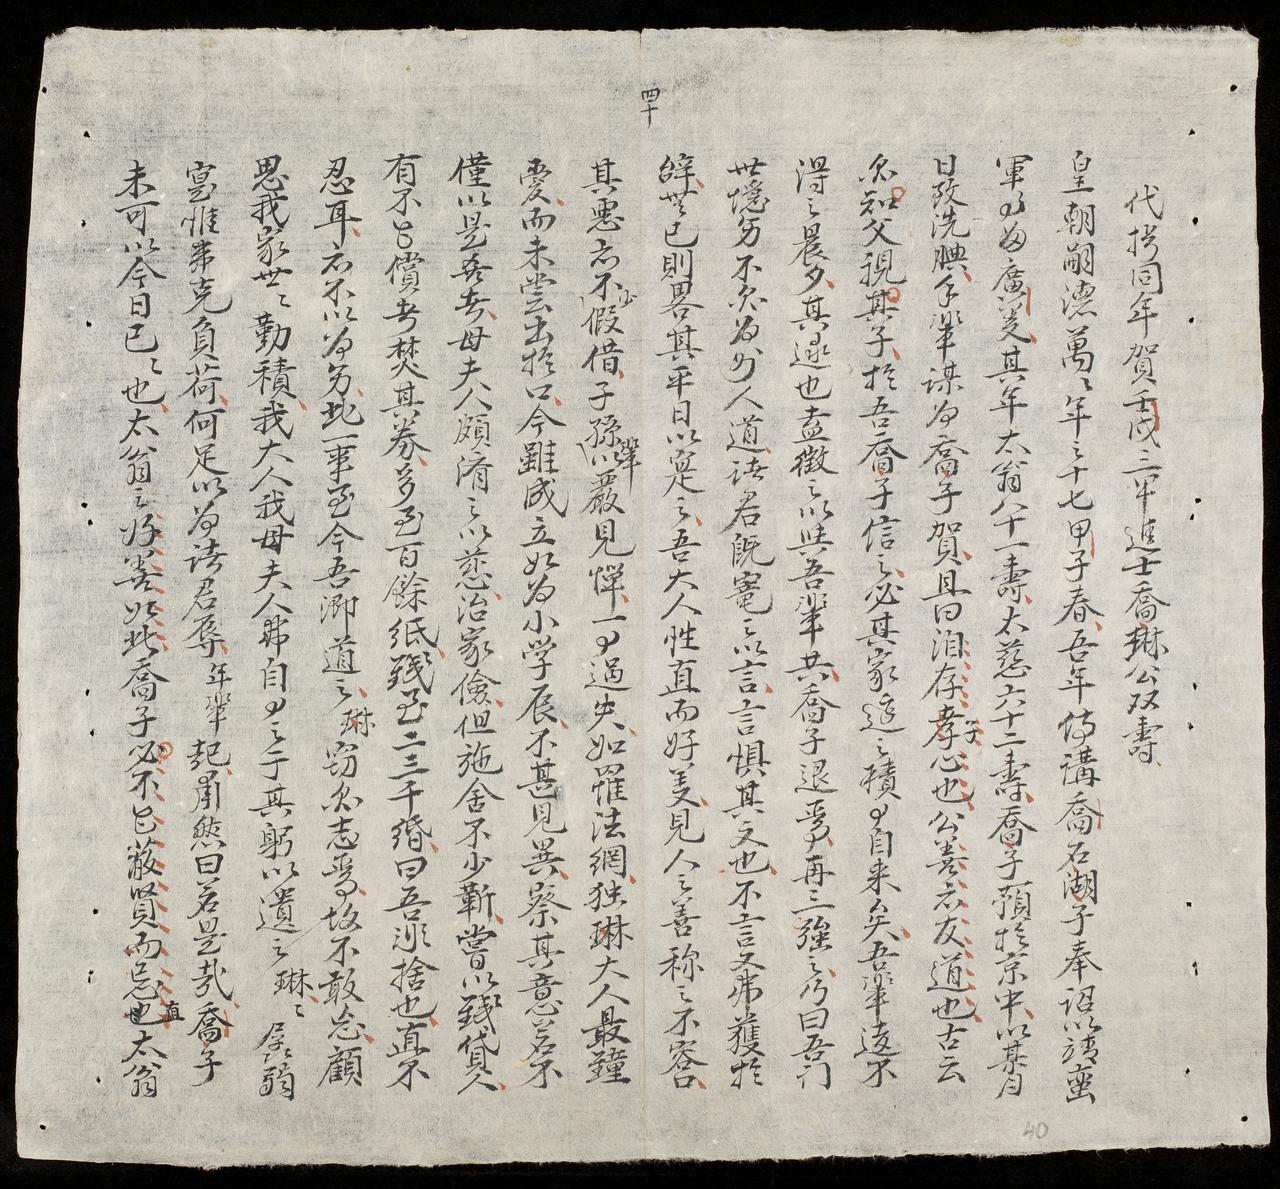 四十
代拱同年賀壬戌三甲進士喬琳公双壽
皇朝嗣德萬々年之十七甲子春吾年侍講喬石湖子奉詔以靖蠻
軍次廣美其年太翁八十一壽太慈六十二壽喬子預於京中以某月
日改洗腆年輩謀為喬子賀且曰洎存孝子心也公善亦友道也古云
欲知父視其子於吾喬子信之必其家庭之積有自来矣吾輩遠不
得之晨夕其逐也盍徵之以與吾輩共喬子退焉再三強之乃曰吾门
世墝另不欲為外人道諸君既寵之以言言惧其文也不言又弗獲於
辞無已則畧其平日以寔之吾大人性直而好善見人之善称之不容口
其惡亦不少假借子孫輩以嚴見憚一有過失如罹法網独琳大人最鐘
愛而未嘗出於口今雖成立如為小学辰不甚見異察其意若不
僅以是吾者母夫人頗濟之以慈治家儉但施舍不少靳嘗以錢貸人
有不足償者焚其券多至百餘紙錢至二三千緡曰吾非捨也直不
忍耳亦不以為另此一事至今吾鄉道之琳窃欲志焉故不敢忘顧
思我家世々勤積我大人我母夫人弗自有之于其躬以遺之琳々孱弱
寔惟弗克負荷何足以為諸君辱年輩起肅然曰若是哉喬子
未可以今日已々也太翁之好善如此喬子必不足蔽賢而忌直也太翁
40